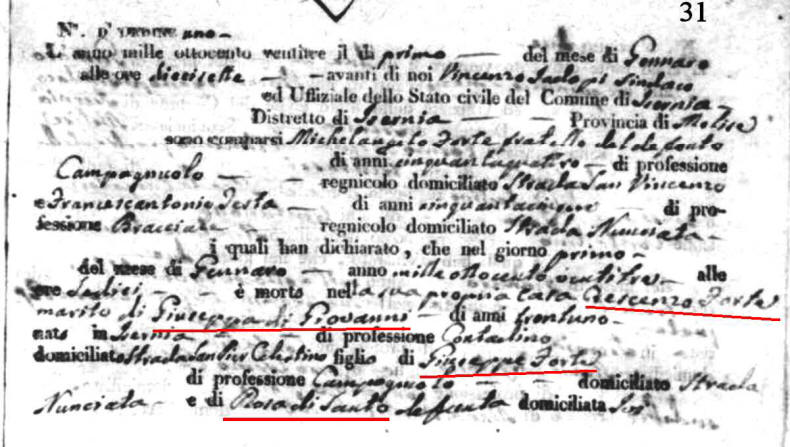 31
N.° d'ordine uno
L'anno mille ottocento ventitre il dì primo — del mese di Gennaro
alle ore diecisette — avanti di noi Vincenzo Sindaco
ed Uffiziale dello Stato civile del Comune di Isernia
Distretto di Isernia — Provincia di Molise
sono comparsi Michelangelo Forte fratello del defonto
di anni cinquantaquattro — di professione
Campagnuolo — regnicolo domiciliato Strada San Vincenzo
e Francescantonio Testa — di anni cinquantacinque — di pro-
fessione Bracciale — regnicolo domiciliato Strada Nunciata —
i quali han dichiarato, che nel giorno primo —
del mese di Gennaro — anno mille ottocento ventitre — alle
ore sedici — è morto nella sua propria casa Crescenzo Forte
marito di Giuseppa di Giovanni — di anni trentuno —
nato in Isernia — di professione Contadino
domiciliato Strada San Pier Celestino figlio di Giuseppe Forte
di professione Campagnuolo — domiciliato Strada
Nunciata — e di Rosa di Santo defunta domiciliata